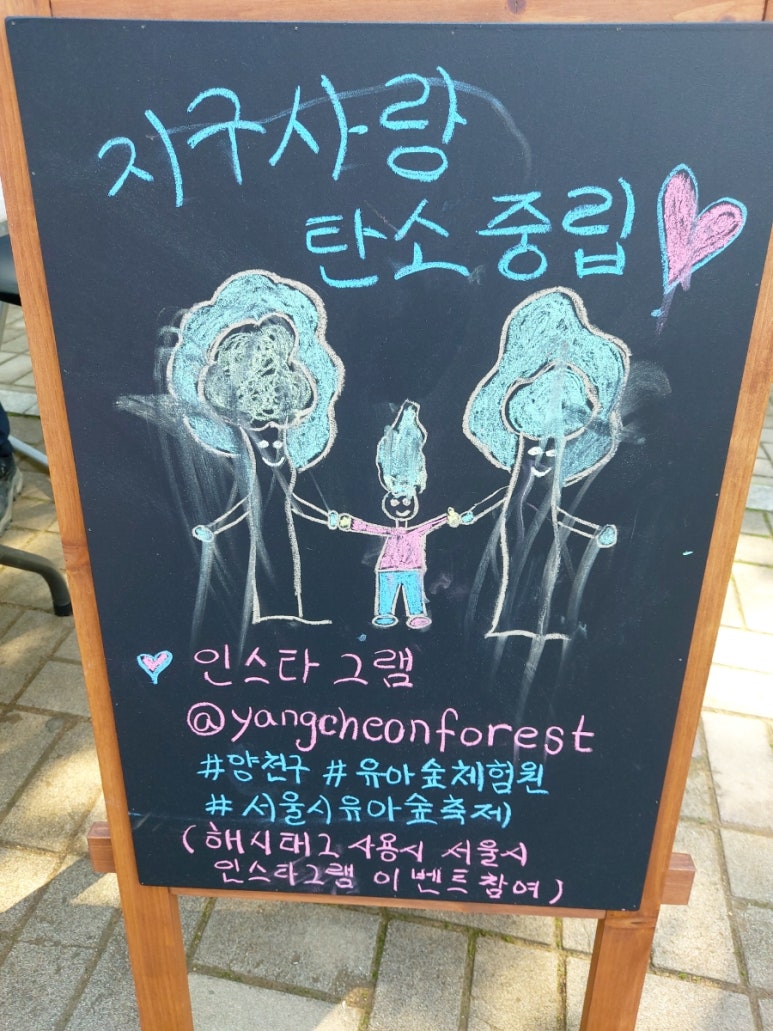 지구사랑
탄소중립
인스타그램
@yangcheonforest
#양천구 #유아숲체험원
#서울시유아숲축제
(해시태그 사용시 서울시
인스타그램 이벤트참여)